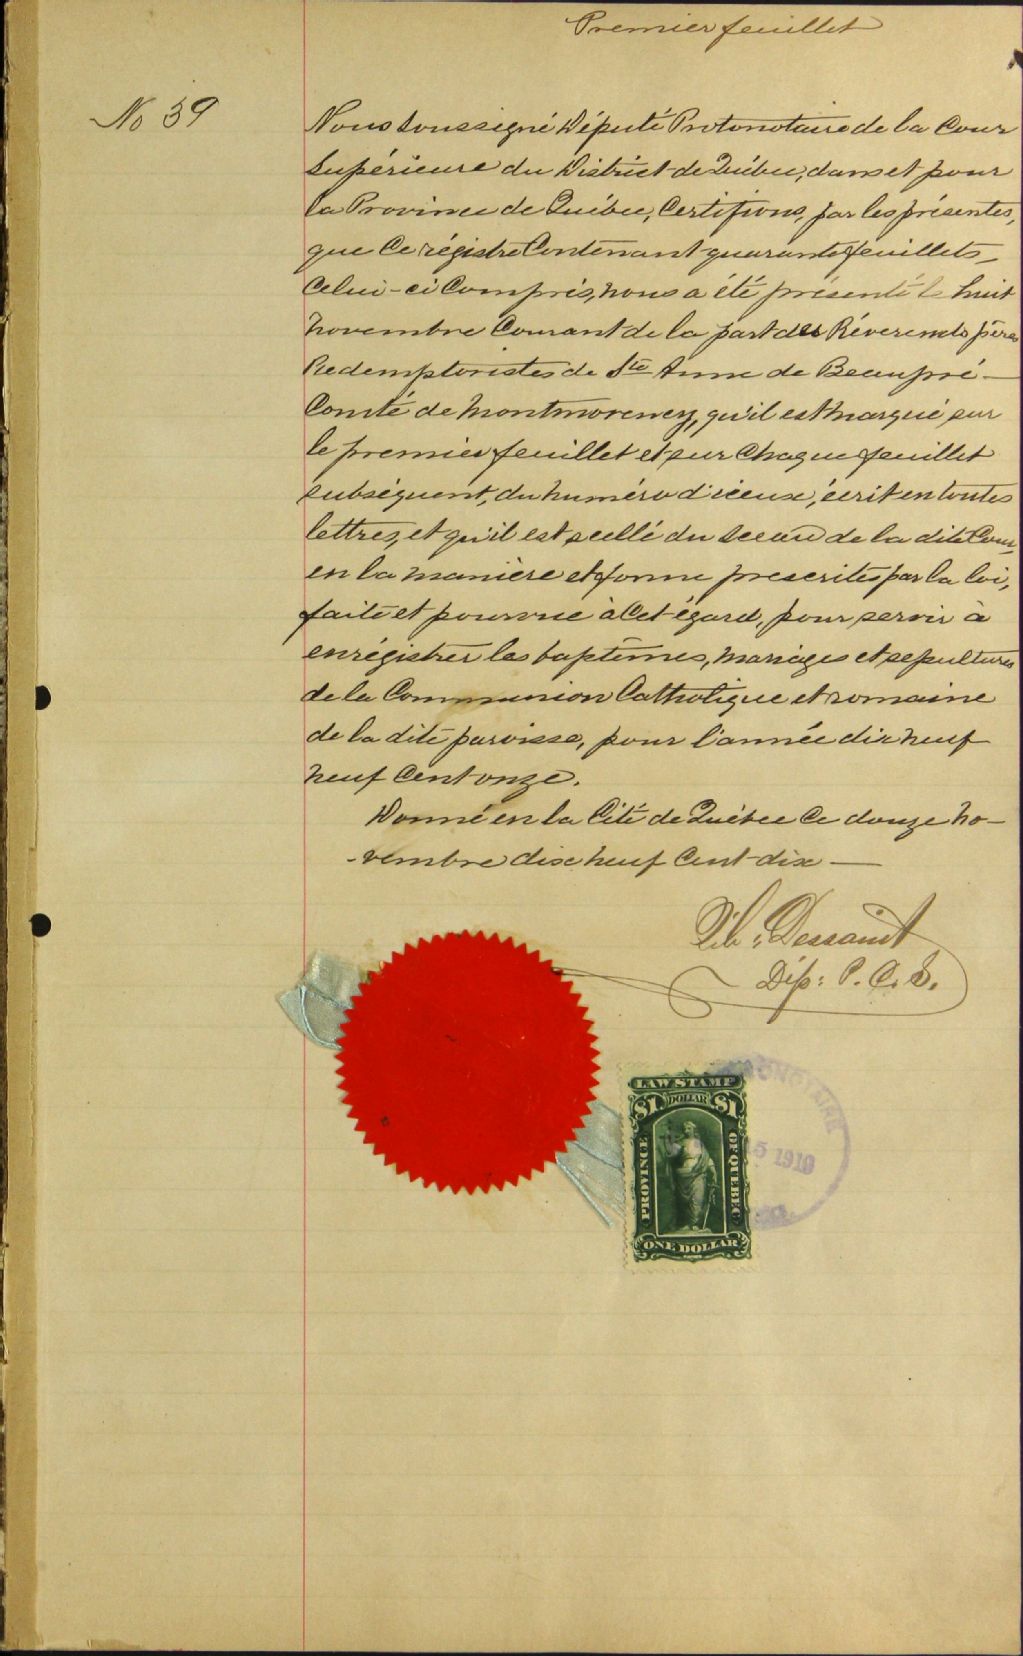 Premier feuillet
No 39
Nous soussigné Député Protonotaire de la Cour
Supérieure du District de Québec, dans et pour
la Province de Québec, Certifions, par les présentes,
que Ce régistre Contenant quarante feuillets
Celui-ci Compris, nous a été présenté le huit
novembre Courant de la part des Réverends pères
Redemptoristes de Ste Anne de Beaupré —
Comté de Montmorency, qu'il est marqué sur
le premier feuillet et sur Chaque feuillet
subséquent, du numéro d'iceux, écrit en toutes
lettres, et qu'il est scellé du sceau de la dite Cour,
en la manière et forme prescrites par la loi,
faite et pourvue à Cet égard, pour servir à
enrégistrer les baptêmes, mariages et sepultures
de la Communion Catholique et romaine
de la dite paroisse, pour l'année dix neuf
neuf Cent onze.
Donné en la Cité de Québec Ce douze no-
-vembre dix neuf Cent dix —
Dessaint
Dép: P. C. S.
LAW STAMP
$1 DOLLAR $1
PROVINCE OF QUEBEC
ONE DOLLAR
5 1910